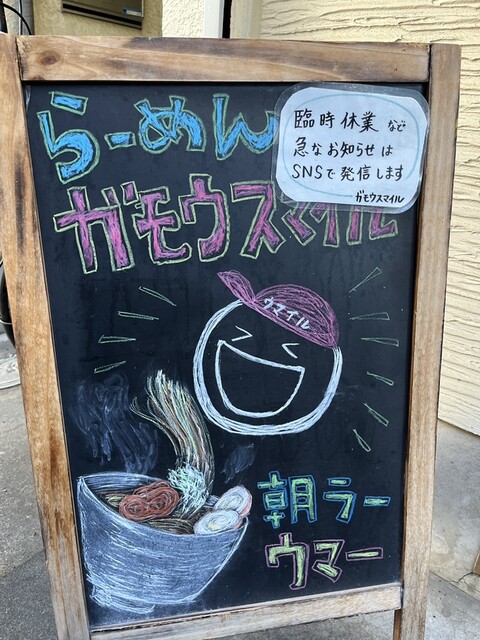 らーめん
ガモウスマイル
臨時休業など
急なお知らせは
SNSで発信します
ガモウスマイル
ウマイル
朝ラー
ウマー